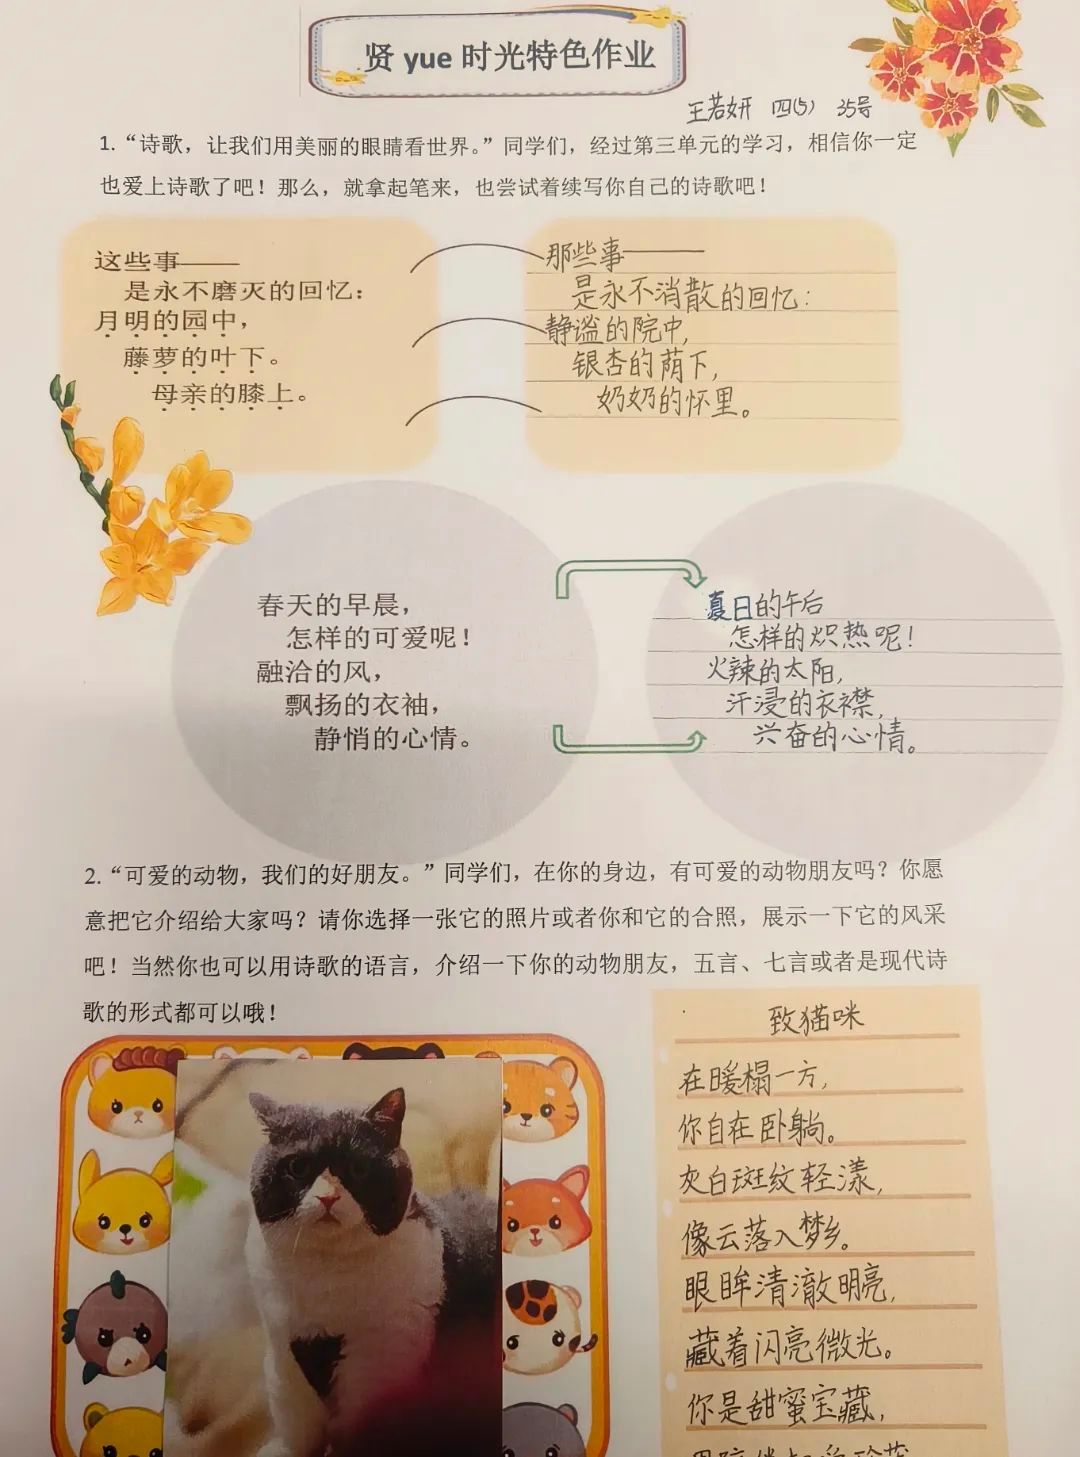 贤 yue 时光特色作业
王若妍 四(5) 35号
1.“诗歌，让我们用美丽的眼睛看世界。”同学们，经过第三单元的学习，相信你一定
也爱上诗歌了吧！那么，就拿起笔来，也尝试着续写你自己的诗歌吧！
这些事——
是永不磨灭的回忆：
月明的园中，
藤萝的叶下。
母亲的膝上。
那些事——
是永不消散的回忆：
静谧的院中，
银杏的荫下，
奶奶的怀里。
春天的早晨，
怎样的可爱呢！
融洽的风，
飘扬的衣袖，
静悄的心情。
夏日的午后
怎样的炽热呢！
火辣的太阳，
汗浸的衣襟，
兴奋的心情。
2.“可爱的动物，我们的好朋友。”同学们，在你的身边，有可爱的动物朋友吗？你愿
意把它介绍给大家吗？请你选择一张它的照片或者你和它的合照，展示一下它的风采
吧！当然你也可以用诗歌的语言，介绍一下你的动物朋友，五言、七言或者是现代诗
歌的形式都可以哦！
致猫咪
在暖榻一方，
你自在卧躺。
灰白斑纹轻漾，
像云落入梦乡。
眼眸清澈明亮，
藏着闪亮微光。
你是甜蜜宝藏，